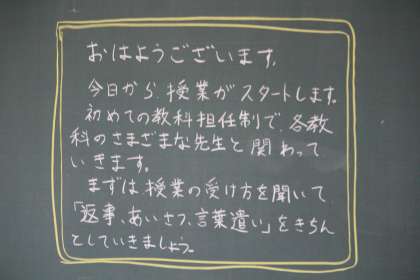 おはようございます。
今日から、授業がスタートします。
初めての教科担任制で、各教
科のさまざまな先生と関わって
いきます。
まずは授業の受け方を聞いて
「返事、あいさつ、言葉遣い」をきちん
としていきましょう。